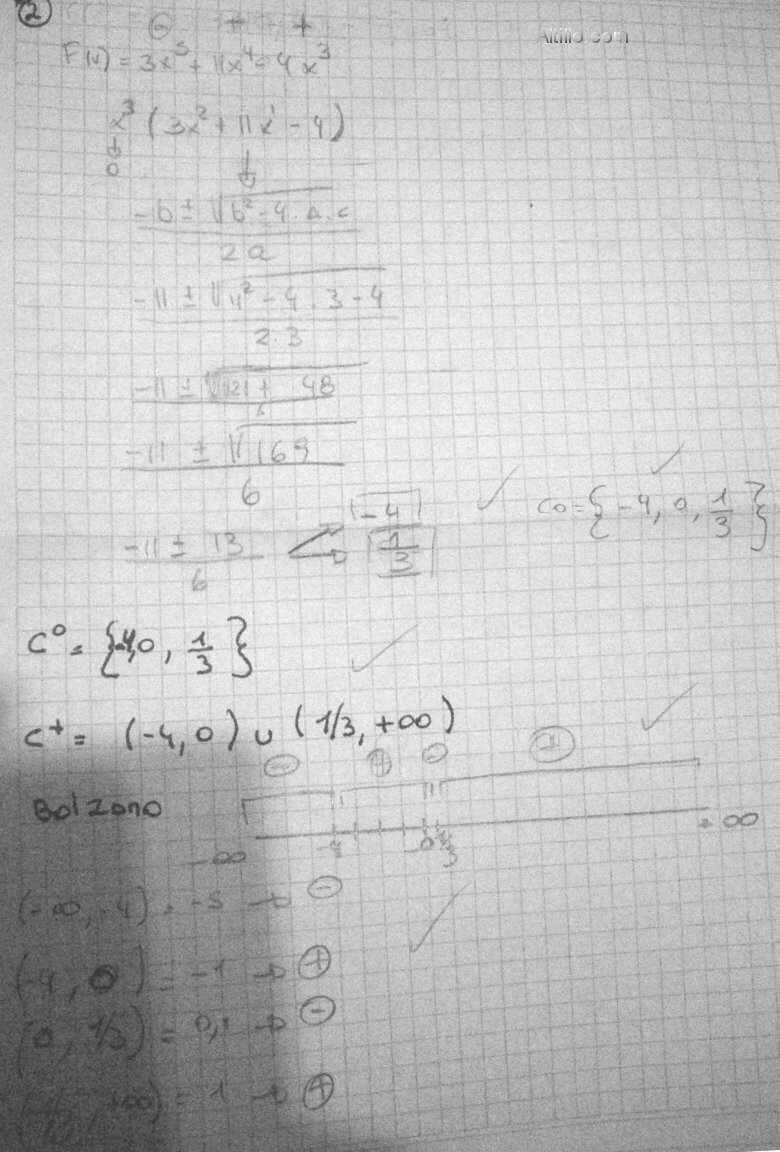 2
Altillo.com
F(x) = 3x⁵ + 11x⁴ - 4x³
x³ (3x² + 11x¹ - 4)
↓ ↓
0
-b ± √b² - 4.a.c
2a
-11 ± √11² - 4 . 3 - 4
2.3
-11 ± √121 + 48
6
-11 ± √169
6
-11 ± 13
6
-4
1/3
C0 = {-4, 0, 1/3}
C⁰ = {-4, 0, 1/3}
C⁺ = (-4, 0) ∪ (1/3, +∞)
⊖ ⊕ ⊖ ⊕
Bolzano
-∞ -4 0 1/3 +∞
(-∞, -4) = -5 → ⊖
(-4, 0) = -1 → ⊕
(0, 1/3) = 0,1 → ⊖
(1/3, +∞) = 1 → ⊕